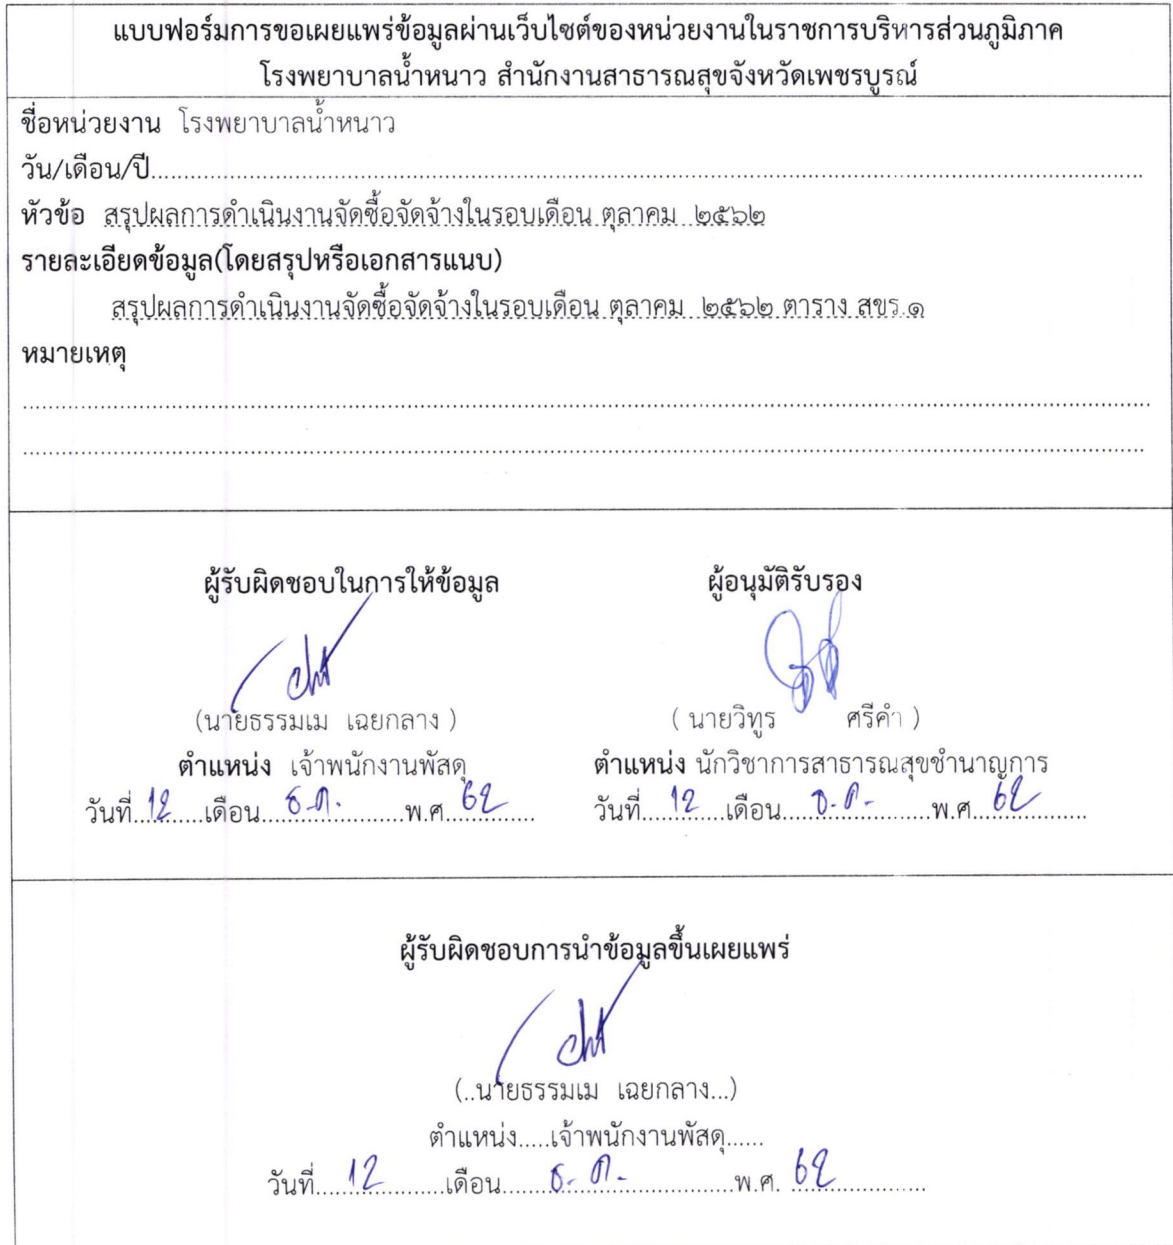 แบบฟอร์มการขอเผยแพร่ข้อมูลผ่านเว็บไซต์ของหน่วยงานในราชการบริหารส่วนภูมิภาค
โรงพยาบาลน้ำหนาว สำนักงานสาธารณสุขจังหวัดเพชรบูรณ์
ชื่อหน่วยงาน โรงพยาบาลน้ำหนาว
วัน/เดือน/ปี
หัวข้อ สรุปผลการดำเนินงานจัดซื้อจัดจ้างในรอบเดือน ตุลาคม ๒๕๖๒
รายละเอียดข้อมูล(โดยสรุปหรือเอกสารแนบ)
สรุปผลการดำเนินงานจัดซื้อจัดจ้างในรอบเดือน ตุลาคม ๒๕๖๒ ตาราง สขร.๑
หมายเหตุ
ผู้รับผิดชอบในการให้ข้อมูล ผู้อนุมัติรับรอง
(นายธรรมเม เฉยกลาง ) ( นายวิทูร ศรีคำ )
ตำแหน่ง เจ้าพนักงานพัสดุ ตำแหน่ง นักวิชาการสาธารณสุขชำนาญการ
วันที่ 12 เดือน ธ.ค. พ.ศ 62 วันที่ 12 เดือน ธ.ค. พ.ศ. 62
ผู้รับผิดชอบการนำข้อมูลขึ้นเผยแพร่
(..นายธรรมเม เฉยกลาง...)
ตำแหน่ง.....เจ้าพนักงานพัสดุ......
วันที่ 12 เดือน ธ.ค. พ.ศ. 62